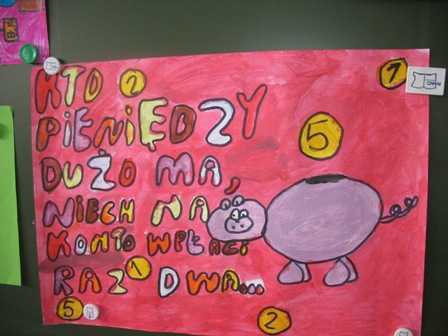 KTO 2
PIENIĘDZY
DUŻO MA,
NIECH NA
KONTO WPŁACI
RAZ 1 DWA...
5
7
5
2